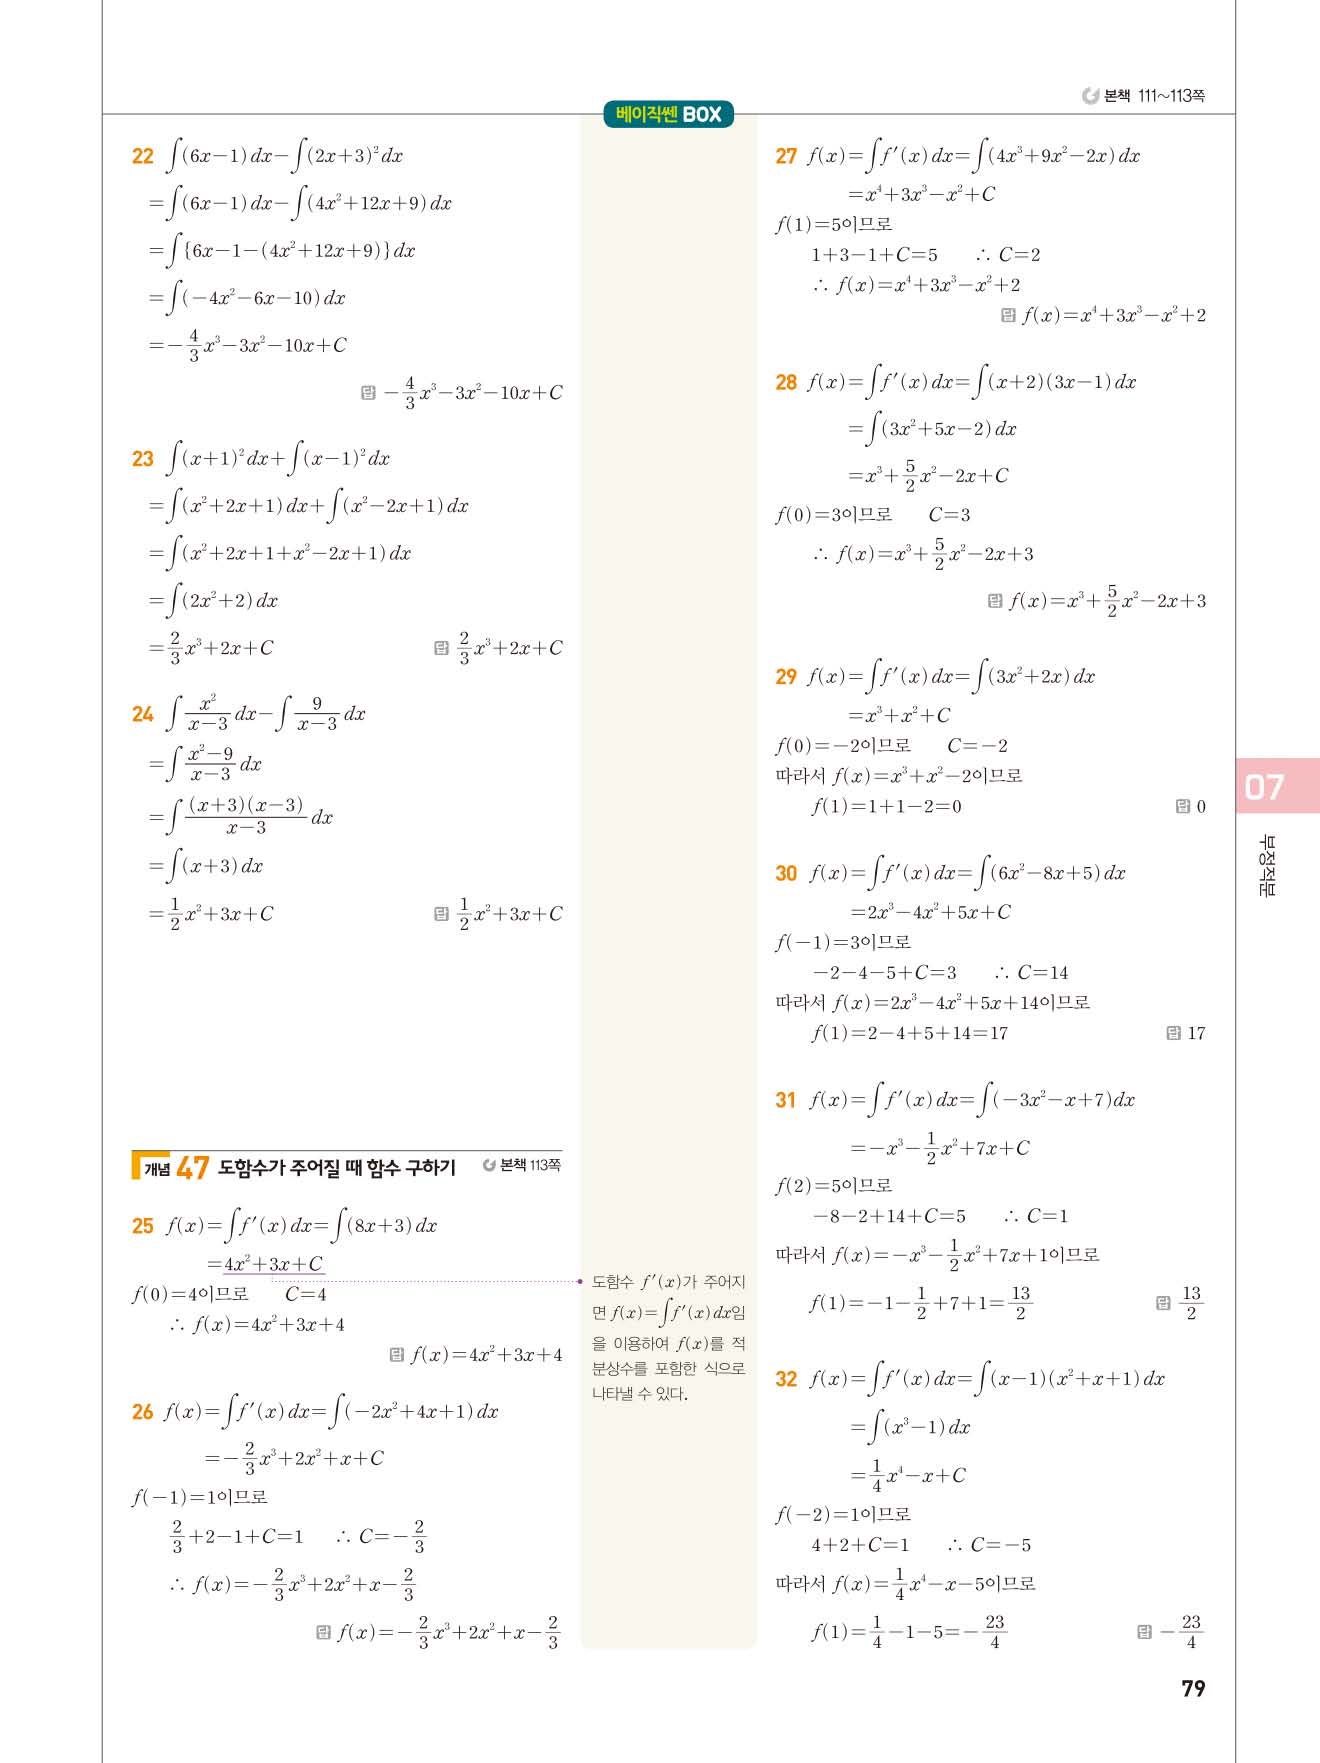 본책 111~113쪽
베이직쎈 BOX
22 ∫(6x-1)dx-∫(2x+3)²dx
=∫(6x-1)dx-∫(4x²+12x+9)dx
=∫{6x-1-(4x²+12x+9)}dx
=∫(-4x²-6x-10)dx
=-4/3x³-3x²-10x+C
답 -4/3x³-3x²-10x+C
23 ∫(x+1)²dx+∫(x-1)²dx
=∫(x²+2x+1)dx+∫(x²-2x+1)dx
=∫(x²+2x+1+x²-2x+1)dx
=∫(2x²+2)dx
=2/3x³+2x+C 답 2/3x³+2x+C
24 ∫x²/(x-3)dx-∫9/(x-3)dx
=∫(x²-9)/(x-3)dx
=∫(x+3)(x-3)/(x-3)dx
=∫(x+3)dx
=1/2x²+3x+C 답 1/2x²+3x+C
개념 47 도함수가 주어질 때 함수 구하기 본책 113쪽
25 f(x)=∫f'(x)dx=∫(8x+3)dx
=4x²+3x+C
f(0)=4이므로 C=4
∴ f(x)=4x²+3x+4
답 f(x)=4x²+3x+4
26 f(x)=∫f'(x)dx=∫(-2x²+4x+1)dx
=-2/3x³+2x²+x+C
f(-1)=1이므로
2/3+2-1+C=1 ∴ C=-2/3
∴ f(x)=-2/3x³+2x²+x-2/3
답 f(x)=-2/3x³+2x²+x-2/3
도함수 f'(x)가 주어지
면 f(x)=∫f'(x)dx임
을 이용하여 f(x)를 적
분상수를 포함한 식으로
나타낼 수 있다.
27 f(x)=∫f'(x)dx=∫(4x³+9x²-2x)dx
=x⁴+3x³-x²+C
f(1)=5이므로
1+3-1+C=5 ∴ C=2
∴ f(x)=x⁴+3x³-x²+2
답 f(x)=x⁴+3x³-x²+2
28 f(x)=∫f'(x)dx=∫(x+2)(3x-1)dx
=∫(3x²+5x-2)dx
=x³+5/2x²-2x+C
f(0)=3이므로 C=3
∴ f(x)=x³+5/2x²-2x+3
답 f(x)=x³+5/2x²-2x+3
29 f(x)=∫f'(x)dx=∫(3x²+2x)dx
=x³+x²+C
f(0)=-2이므로 C=-2
따라서 f(x)=x³+x²-2이므로
f(1)=1+1-2=0 답 0
30 f(x)=∫f'(x)dx=∫(6x²-8x+5)dx
=2x³-4x²+5x+C
f(-1)=3이므로
-2-4-5+C=3 ∴ C=14
따라서 f(x)=2x³-4x²+5x+14이므로
f(1)=2-4+5+14=17 답 17
31 f(x)=∫f'(x)dx=∫(-3x²-x+7)dx
=-x³-1/2x²+7x+C
f(2)=5이므로
-8-2+14+C=5 ∴ C=1
따라서 f(x)=-x³-1/2x²+7x+1이므로
f(1)=-1-1/2+7+1=13/2 답 13/2
32 f(x)=∫f'(x)dx=∫(x-1)(x²+x+1)dx
=∫(x³-1)dx
=1/4x⁴-x+C
f(-2)=1이므로
4+2+C=1 ∴ C=-5
따라서 f(x)=1/4x⁴-x-5이므로
f(1)=1/4-1-5=-23/4 답 -23/4
07
부정적분
79